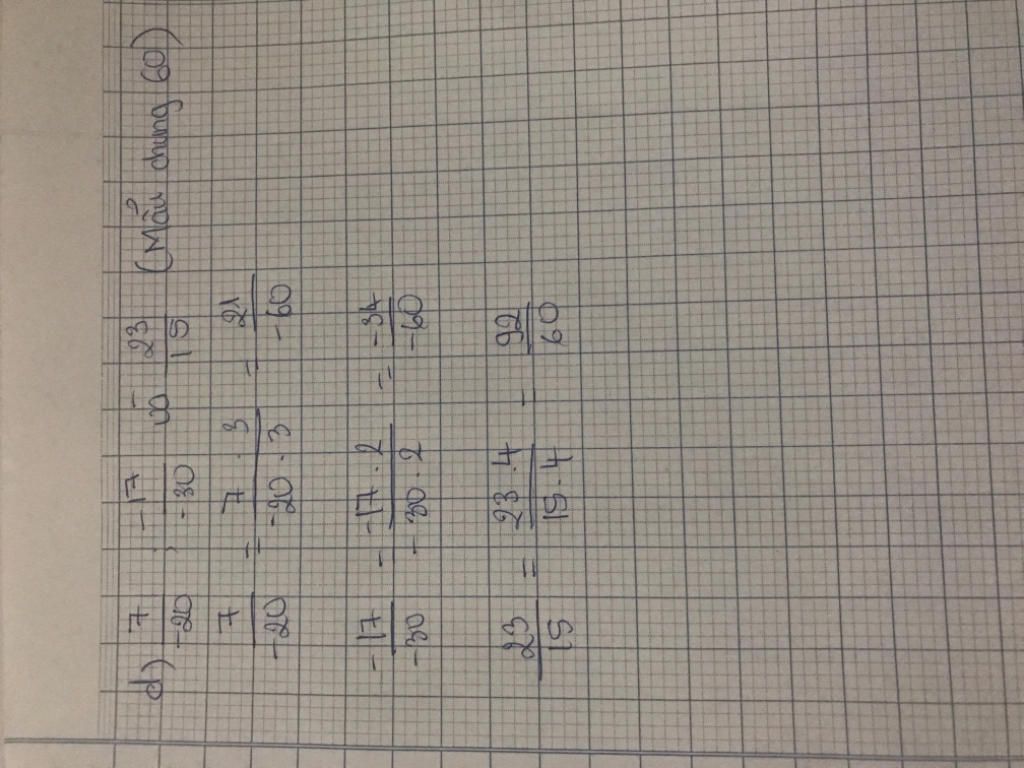 d) 7/-20 , -17/-30 và 23/15 (Mẫu chung 60)
7/-20 = 7 . 3/-20 . 3 = 21/-60
-17/-30 = -17 . 2/-30 . 2 = -34/-60
23/15 = 23 . 4/15 . 4 = 92/60